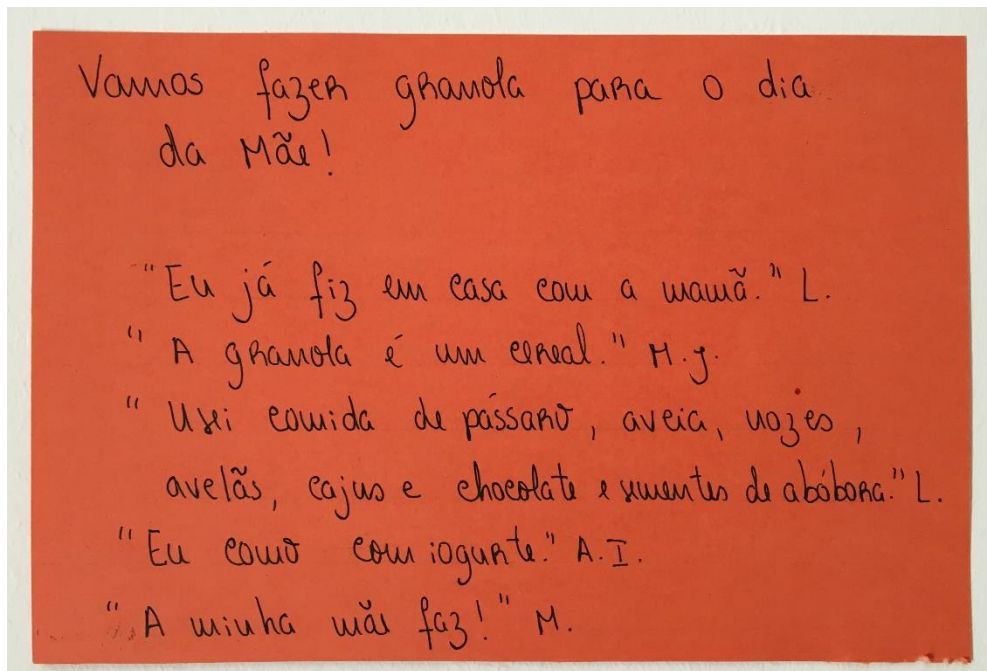 Vamos fazer granola para o dia
da Mãe!
"Eu já fiz em casa com a mamã." L.
"A granola é um cereal." M.J.
"Usei comida de pássaro, aveia, nozes,
avelãs, cajus e chocolate e sementes de abóbora." L.
"Eu como com iogurte." A.I.
"A minha mãe faz!" M.